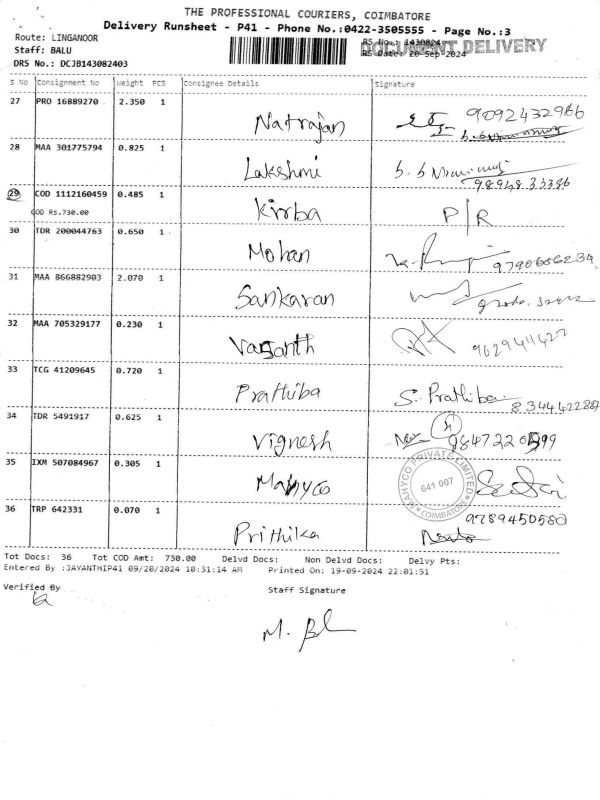 THE PROFESSIONAL COURIERS, COIMBATORE
Delivery Runsheet - P41 - Phone No.:0422-3505555 - Page No.:3
Route: LINGANOOR
Staff: BALU
DRS No.: DCJB143082403
RS No.: 1430824
RS Date: 20-Sep-2024
DOCUMENT DELIVERY
S NO Consignment No Weight PCS Consignee Details Signature
27 PRO 16889270 2.350 1 Natrajan 9092432966
28 MAA 301775794 0.825 1 Lakshmi
29 COD 1112160459 0.485 1 Kirba P|R
COD Rs.730.00
30 TDR 200044763 0.650 1 Mohan 9790656234
31 MAA 866882903 2.070 1 Sankaran
32 MAA 705329177 0.230 1 Vasanth 9629411422
33 TCG 41209645 0.720 1 Prathiba S. Prathiba
34 TDR 5491917 0.625 1 Vignesh
35 IXM 507084967 0.305 1 Mahyco
MAHYCO PRIVATE LIMITED
641 007
COIMBATORE
36 TRP 642331 0.070 1 Prithika 9789450580
Tot Docs: 36 Tot COD Amt: 730.00 Delvd Docs: Non Delvd Docs: Delvy Pts:
Entered By :JAYANTHIP41 09/20/2024 10:31:14 AM Printed On: 19-09-2024 22:01:51
Verified By Staff Signature